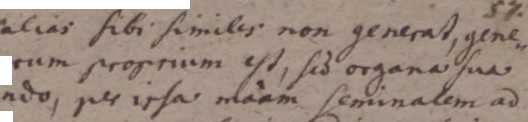 57.
alias sibi similes non generat, gene„
rum proprium est, sed organa sua
ndo, per ipsa mãam seminalem ad